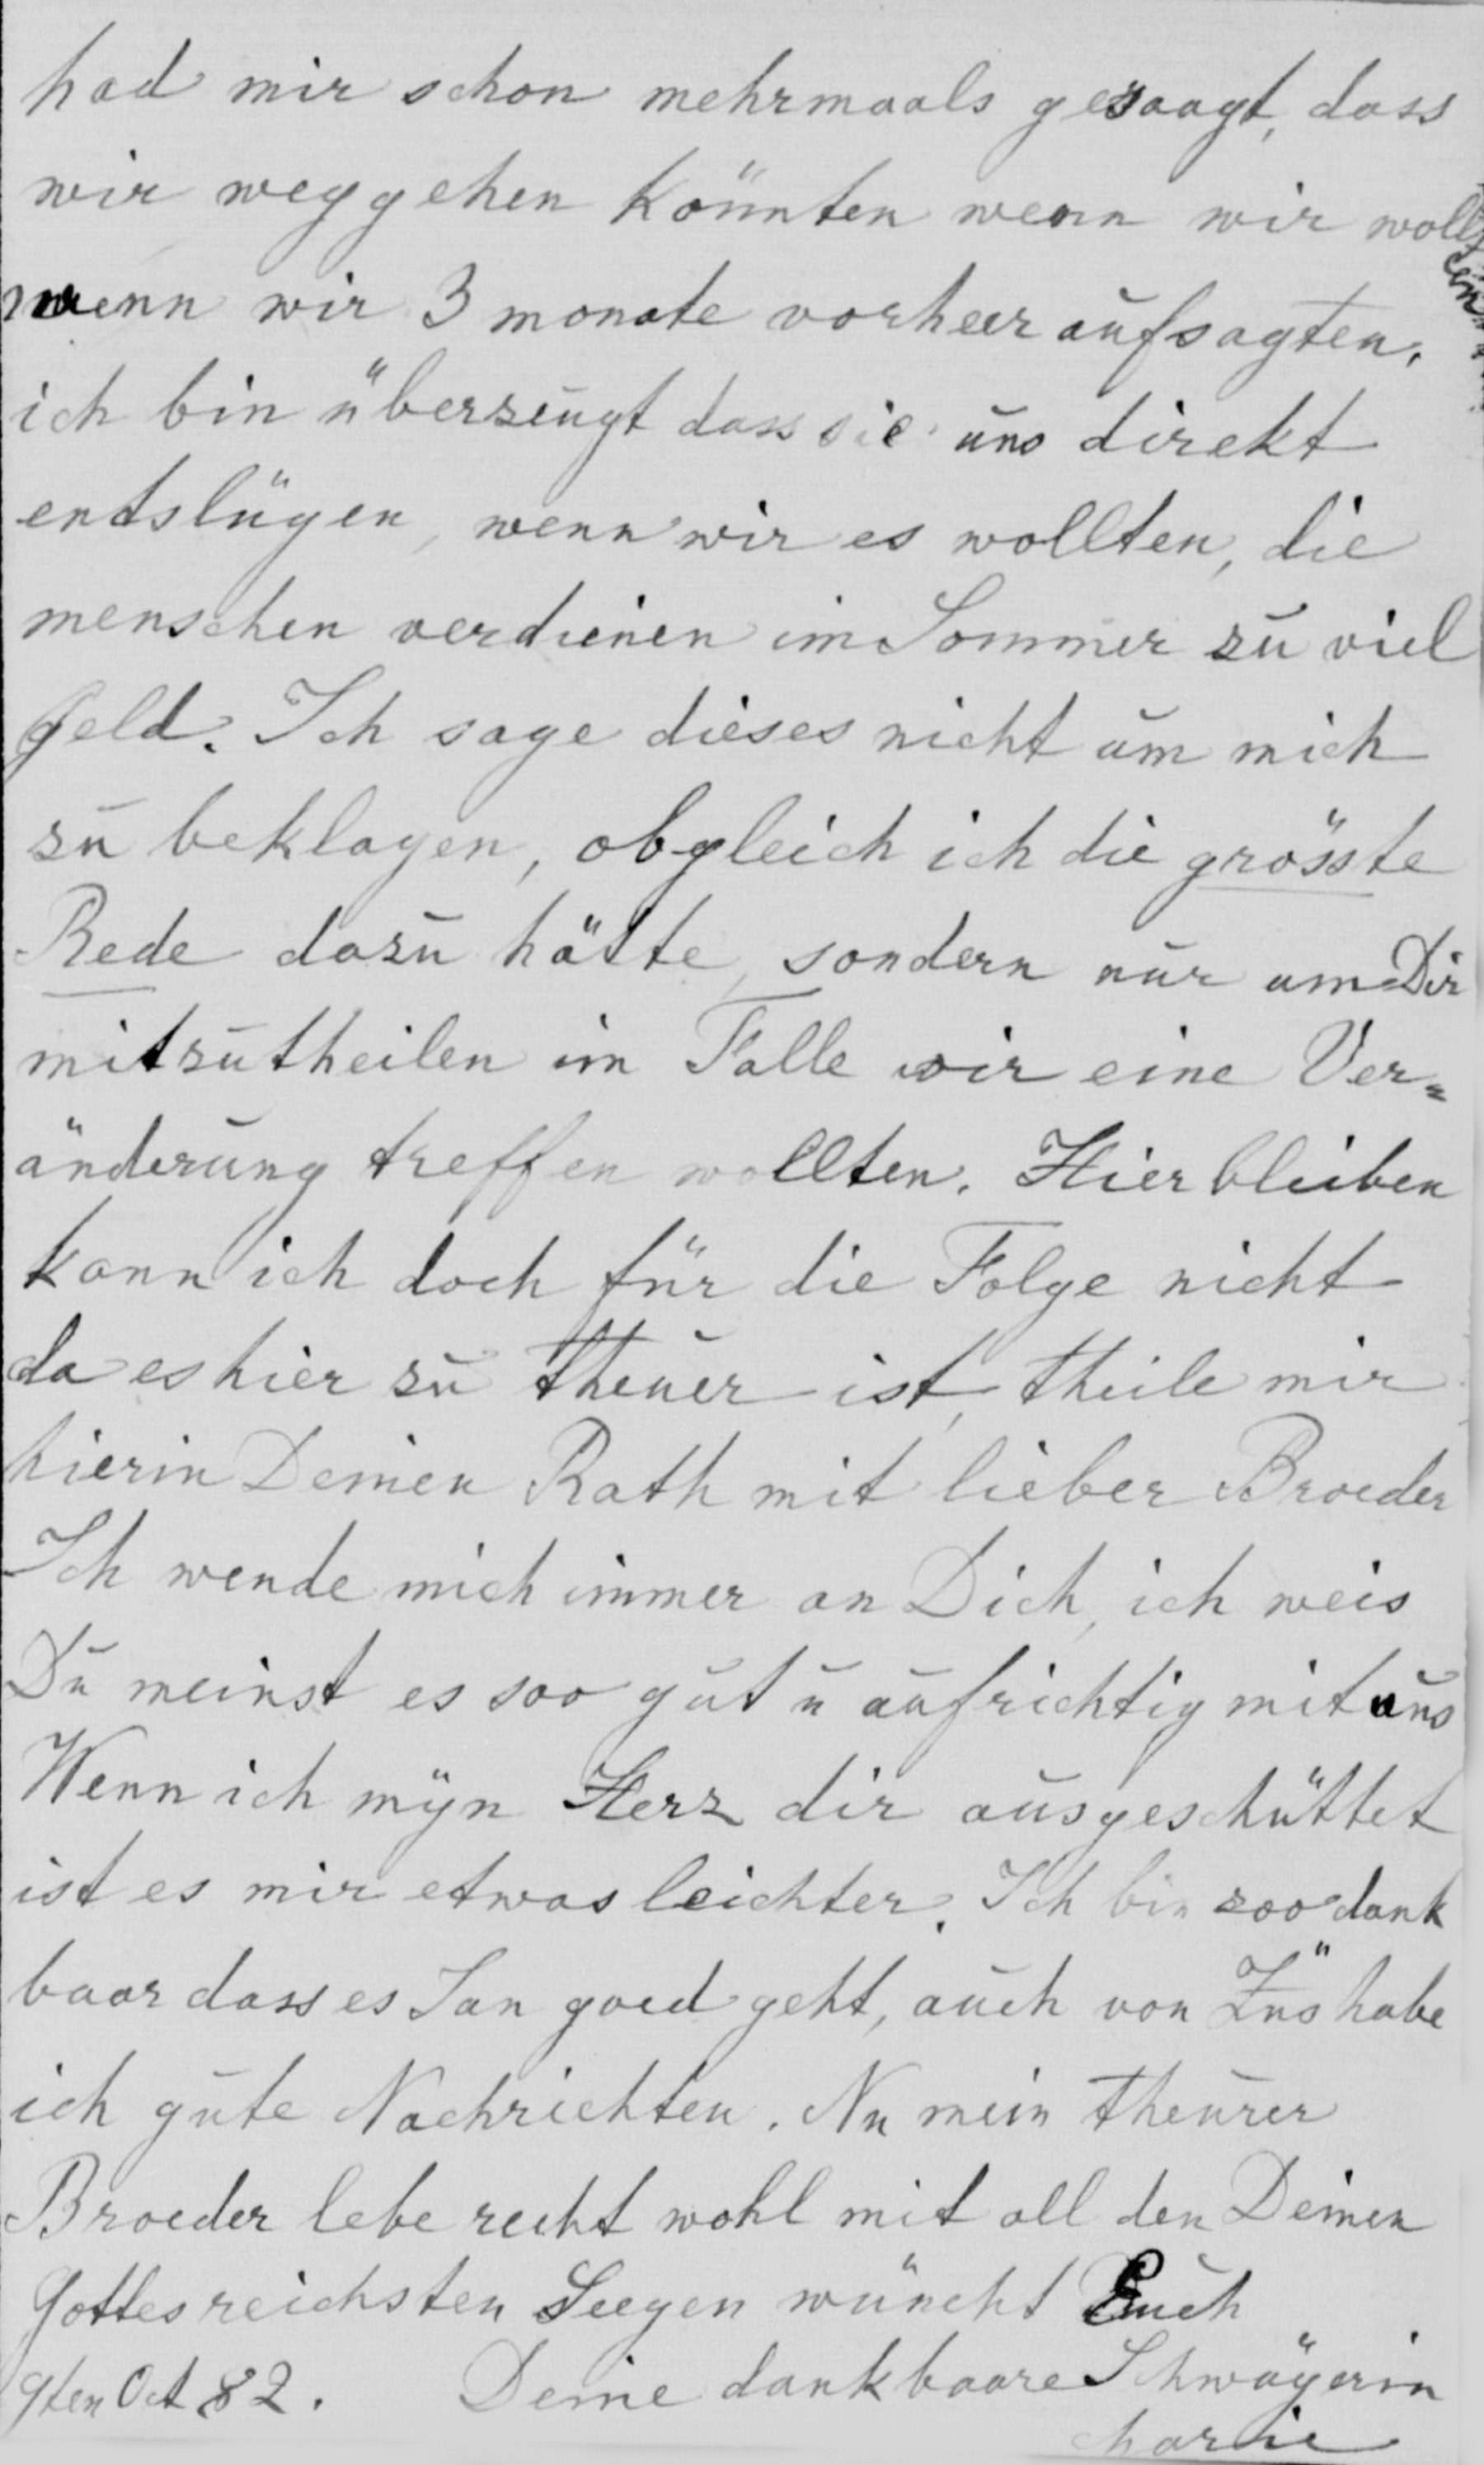 had mir schon mehrmaals gesaagt, dass
wir weggehen könnten wenn wir wollten
wenn wir 3 monate vorheer aufsagten,
ich bin überzeugt dass sie uns direkt
entslügen, wenn wir es wollten, die
menschen verdienen im Sommer zu viel
geld. Ich sage dieses nicht um mich
zu beklagen, obgleich ich die grösste
Rede dazu hätte, sondern nur um Dir
mitzutheilen im Falle wir eine Ver=
änderung treffen wollten. Hier bleiben
kann ich doch für die Folge nicht
da es hier zu theuer ist, theile mir
hierin Deinen Rath mit lieber Broeder
Ich wende mich immer an Dich, ich weis
Du meinst es soo gut u aufrichtig mit uns
Wenn ich mÿn Herz dir ausgeschüttet
ist es mir etwas leichter. Ich bin zoo dank
baar dass es Jan goed geht, auch von habe
ich gute Nachrichten. Nu mein theurer
Broeder lebe recht wohl mit all den Deinen
Gottes reichsten Seegen wüncht Euch
9ten Oct 82. Deine dankbaare Schwägerin
Marie